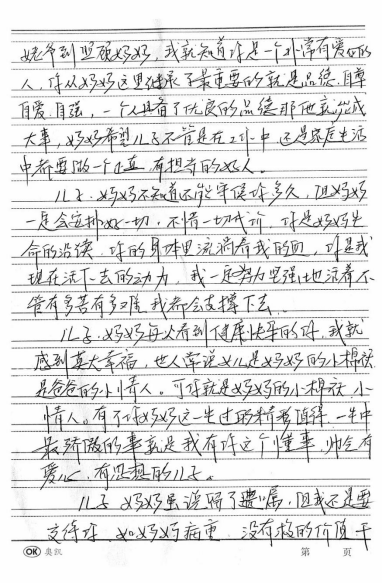 妈妈，我就知道你是一个非常有爱心的
人，你从妈妈这里继承了最重要的就是品德、自尊
自爱、自强，一个人具备了优良的品德那他就能成
大事，妈妈希望儿子不管是在工作中还是家庭生活
中都要做一个正直、有担当的好人。
儿子，妈妈不知道还能守候你多久，但妈妈
一定会安排好一切，不惜一切代价，你是妈妈生
命的延续，你的身体里流淌着我的血，你是我
现在活下去的动力，我一定努力坚强地活着不
管有多苦有多难我都会支撑下去。
儿子，妈妈每次看到健康快乐的你，我就
感到莫大幸福，世人常说女儿是妈妈的小棉袄
是爸爸的小情人。可你就是妈妈的小棉袄、小
情人。有了你妈妈这一生过的精彩值得，一生中
最骄傲的事就是我有你这个懂事、帅气有
爱心、有思想的儿子。
儿子，妈妈虽说留了遗嘱，但我还是要
交待你，如妈妈病重，没有救的价值，千
OK 奥凯 第 页